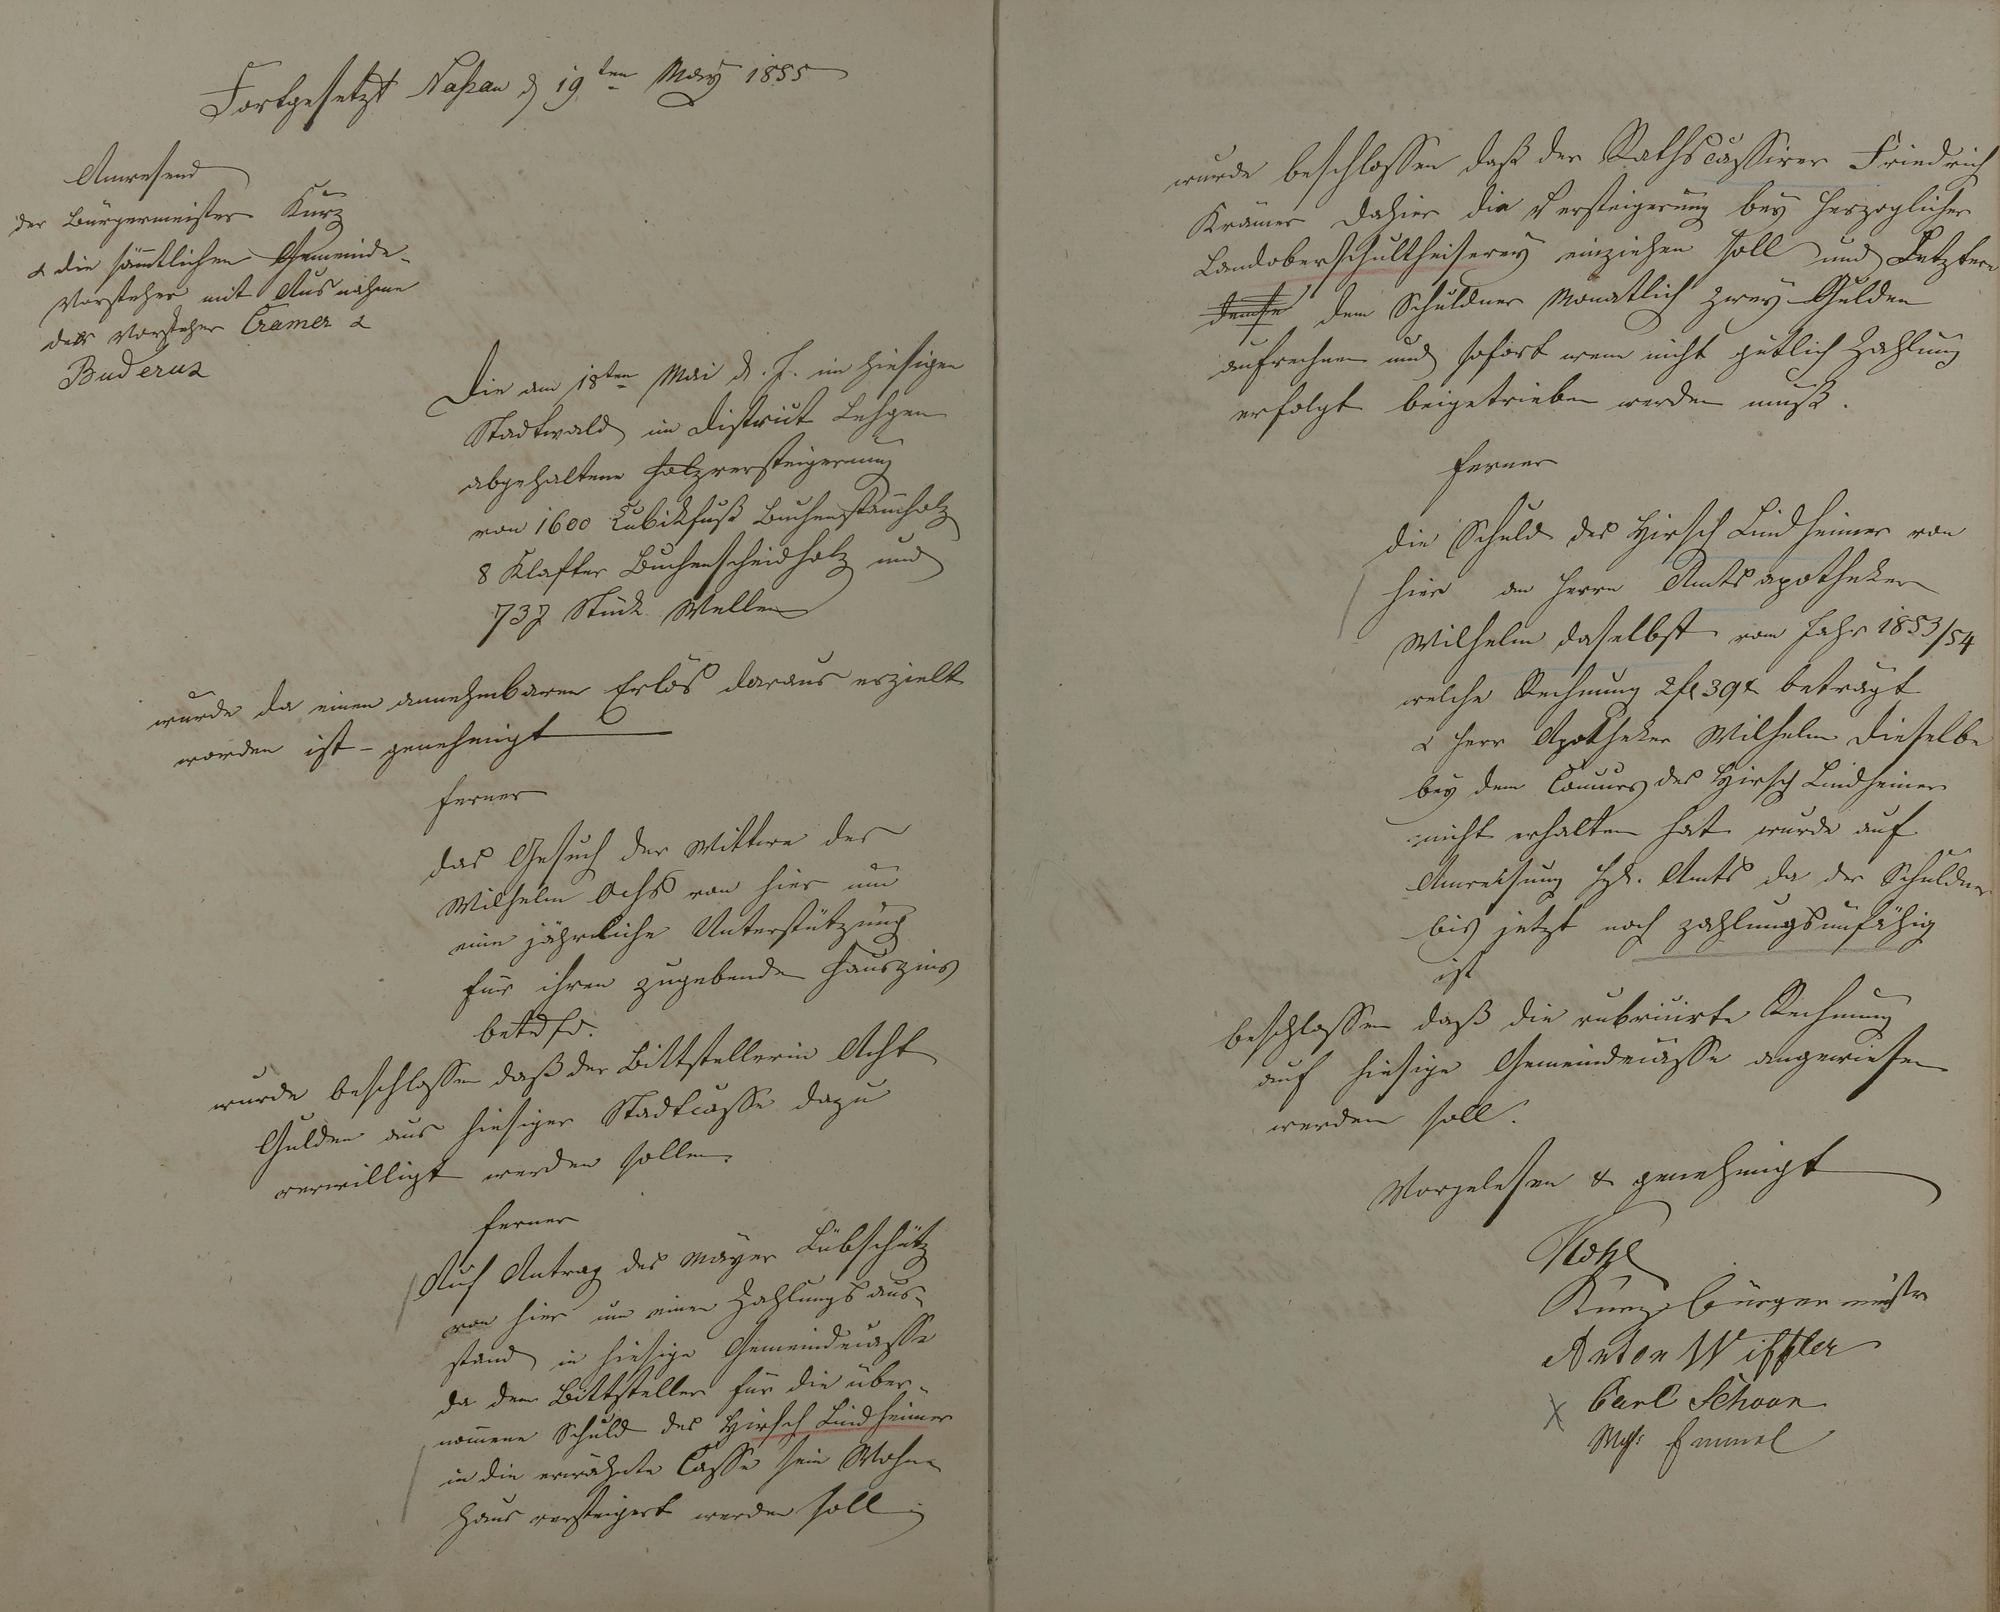 Fortgesetzt Naßau d 19ten May 1855
Anwesend
der Bürgermeister Kurz
& die sämtlichen Gemeinde-
Vorsteher mit Ausnahme
der Vorsteher Cramer &
Buderus
Die am 18ten Mai d. J. im hiesigen
Stadtwald im District Lehgen
abgehaltene Holzversteigerung
von 1600 Cubikfuß Buchenstammholz
8 Klafter Buchenscheidholz und
737 Stück Wellen
wurde da einen annehmbaren Erlös daraus erzielt
worden ist - genehmigt
ferner
das Gesuch der Wittwe des
Wilhelm Ochs von hier um
eine jährliche Unterstützung
für ihren zugebenden Hauszins
betd
wurde beschlossen daß der Bittstellerin Acht
Gulden aus hiesiger Stadtcasse dazu
verwilligt werden sollen.
ferner
Auf Antrag des Mayer Lübschütz
von hier um einen Zahlungsaus-
stand in hiesige Gemeindecasse
da dem Bittsteller für die über-
nomene Schuld des Hirsch Lindheimer
in die erwähnte Casse sein Wohn-
haus versteigert werden soll
wurde beschlossen daß der Rathscassirer Friedrich
Krämer dahier die Versteigerung bey Herzoglicher
Landoberschultheiserey einziehen soll und Letztere
dem Schuldner Monatlich zwey Gulden
aufrechnen und sofort wenn nicht gütlich Zahlung
erfolgt beigetrieben werden muß.
ferner
die Schuld des Hirsch Lindheimer von
hier an Herrn Amtsapotheker
Wilhelm daselbst vom Jahr 1853/54
welche Rechnung 2 fl 39 x beträgt
& Herr Apotheker Wilhelm dieselbe
bey dem Concurs des Hirsch Lindheimer
nicht erhalten hat wurde auf
Anweisung Hzl. Amts da der Schuldner
bis jetzt noch zahlungsunfähig
ist
beschlossen daß die rubricirte Rechnung
auf hiesige Gemeindecasse angewiesen
werden soll.
Vorgelesen & genehmigt
Kurz Bürgermeister
Anton Wiffler
Carl Schoon
Emmel